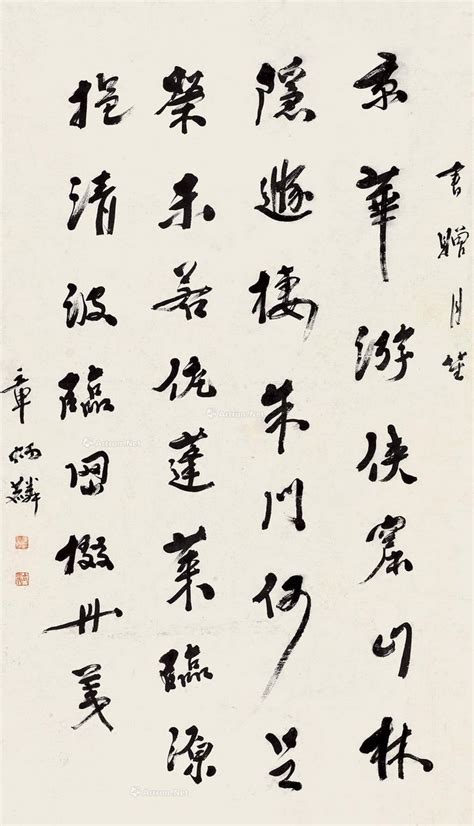 書贈月笙
京華游俠窟山林
隱遯棲朱門何足
榮未若侂蓬萊臨源
挹清波臨岡掇丹荑
章炳麟
Artron.Net